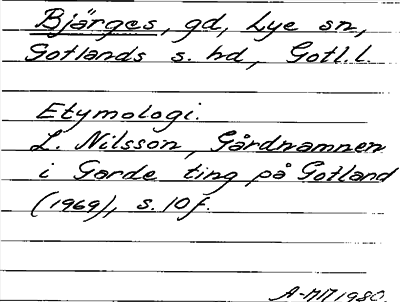 Bjärges, gd, Lye sn,
Gotlands s. hd, Gotl. l.
Etymologi.
L. Nilsson, Gårdnamnen
i Garde ting på Gotland
(1969), s. 10 f.
A-MM 1980.